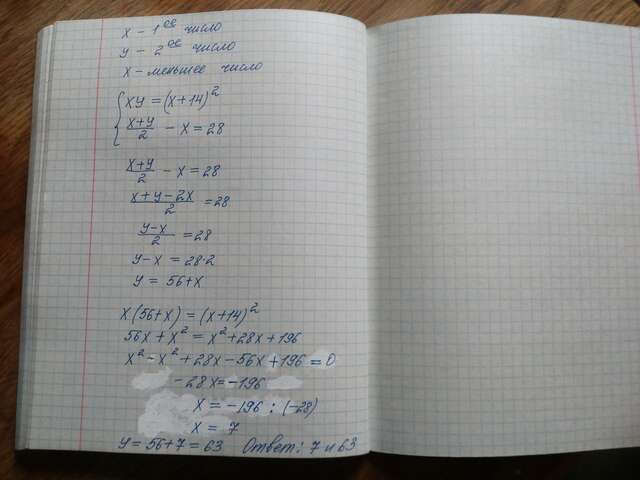 x - 1ое число
y - 2ое число
x - меньшее число
{ xy = (x+14)²
{ (x+y)/2 - x = 28
(x+y)/2 - x = 28
(x+y-2x)/2 = 28
(y-x)/2 = 28
y-x = 28·2
y = 56+x
x(56+x) = (x+14)²
56x + x² = x² + 28x + 196
x² - x² + 28x - 56x + 196 = 0
-28x = -196
x = -196 : (-28)
x = 7
y = 56+7 = 63 Ответ: 7 и 63